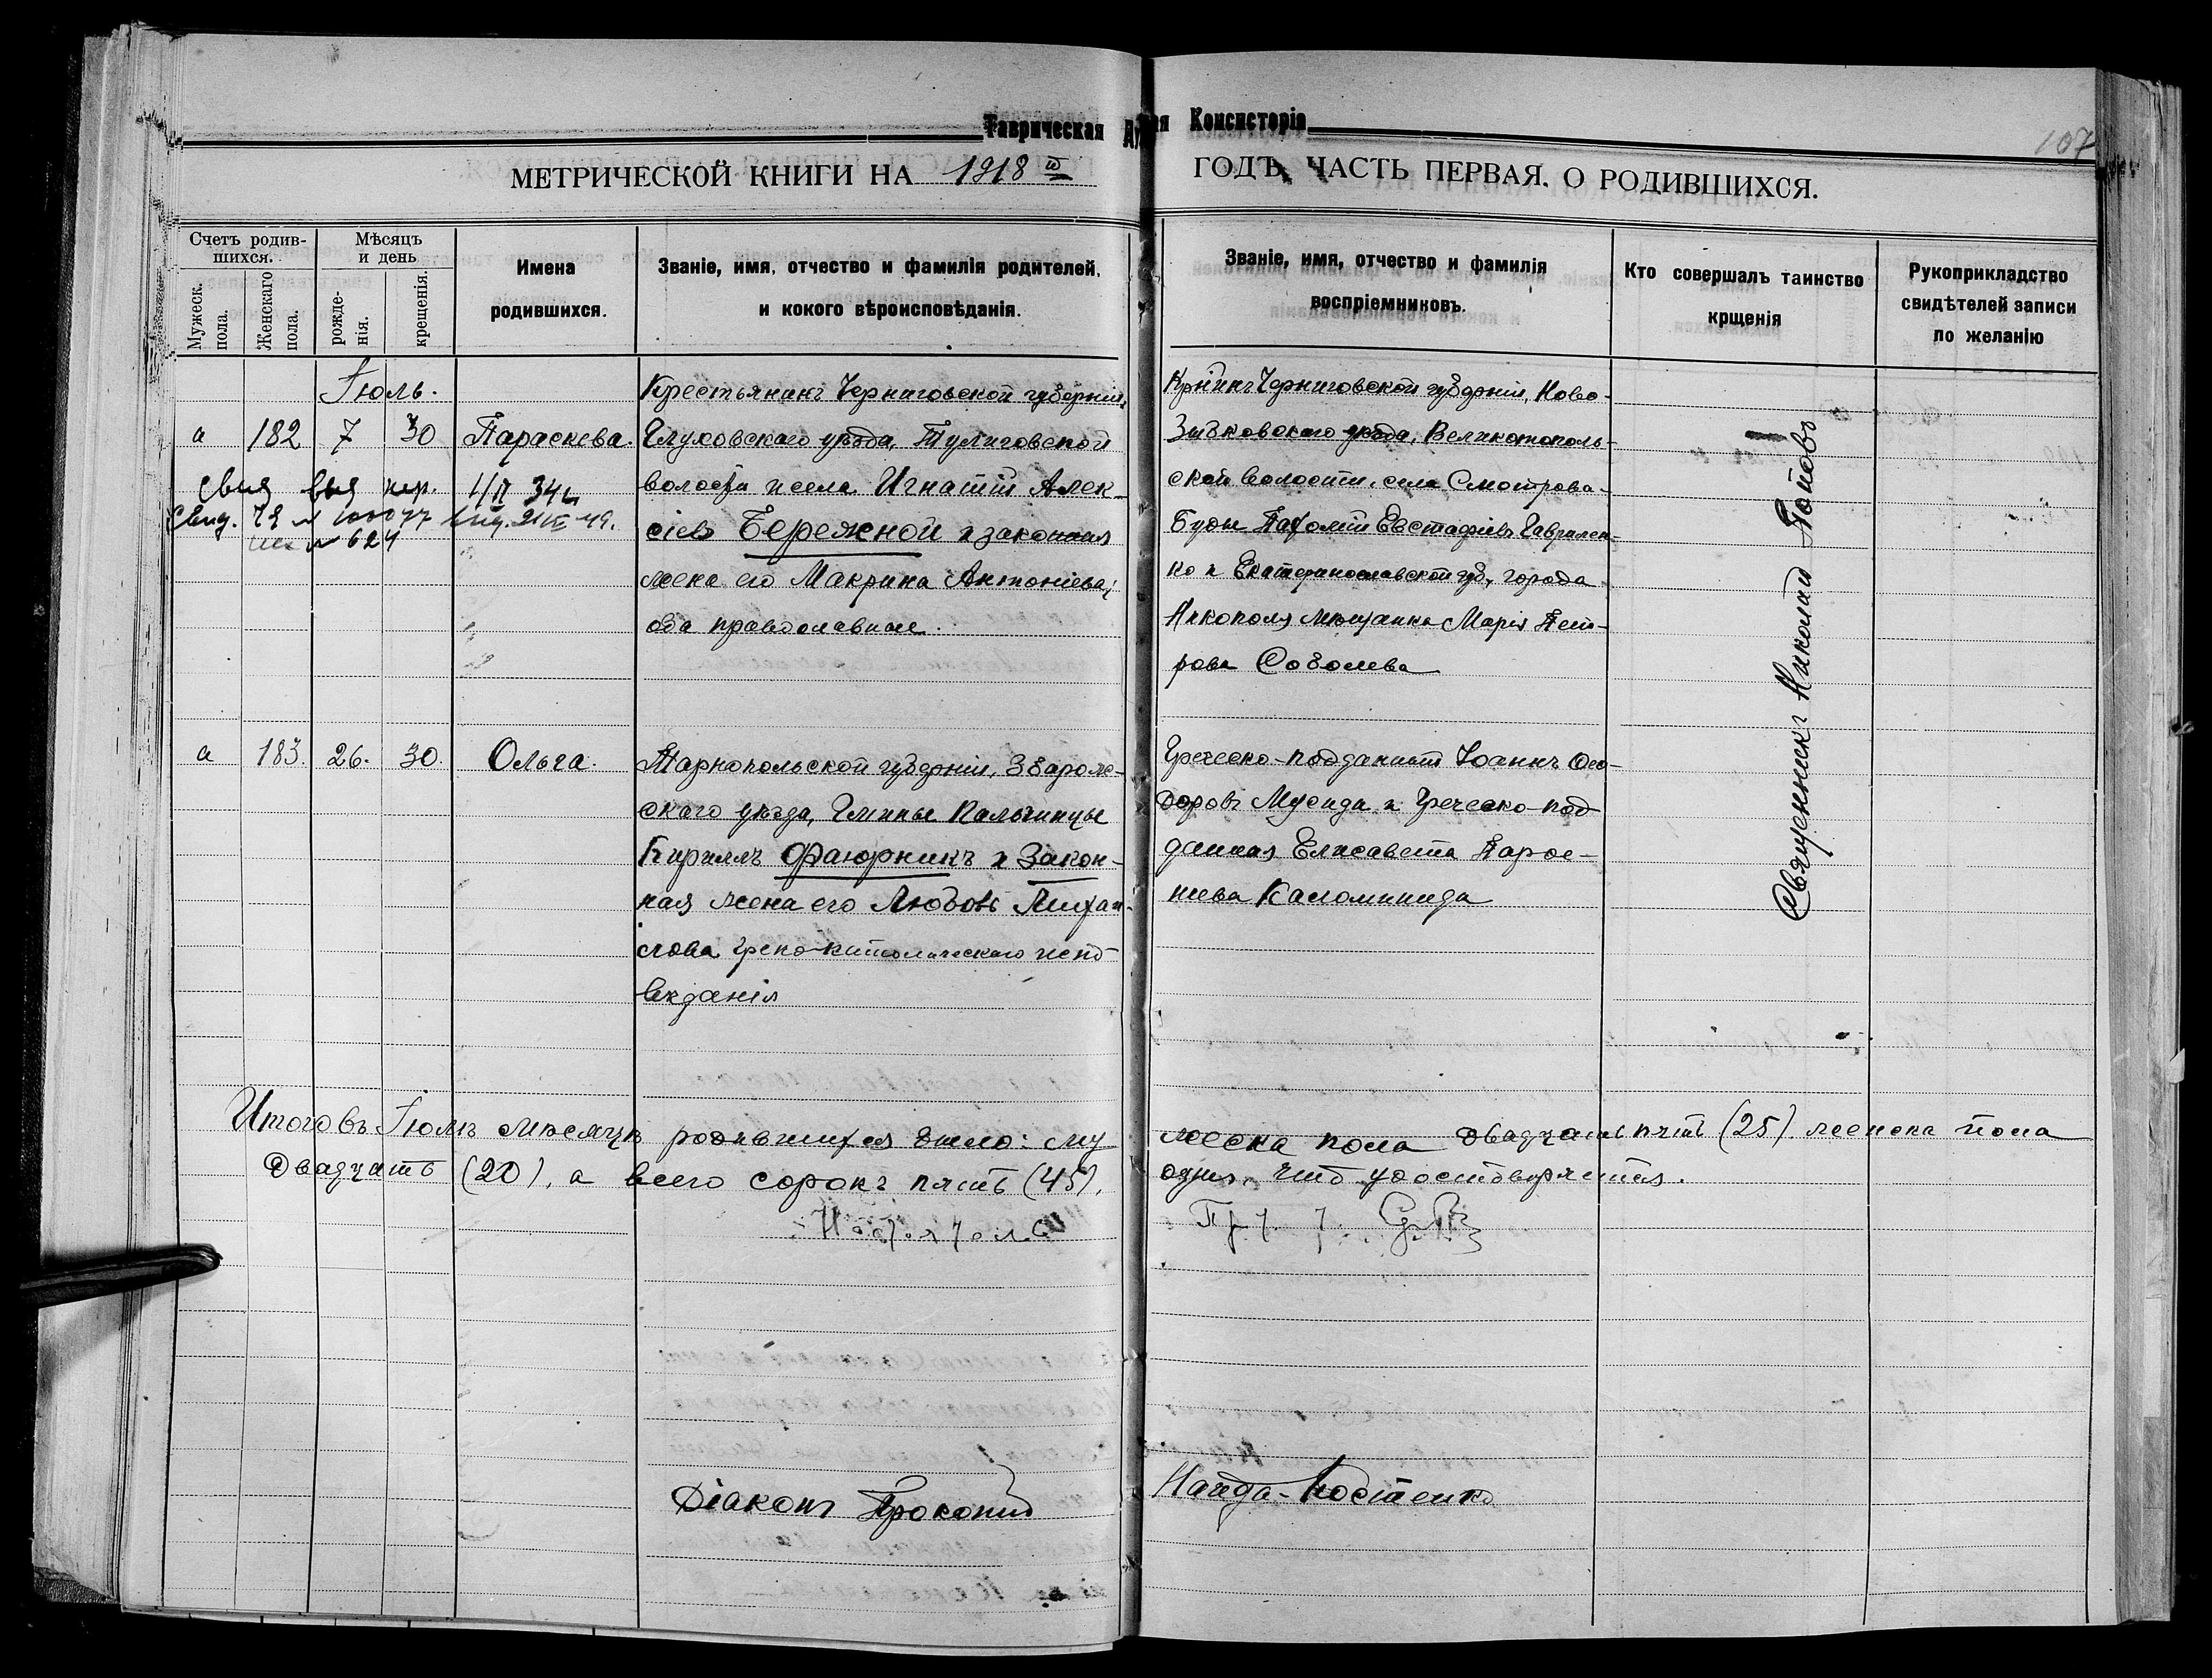 Таврическая Ду ая Консисторія
107
МЕТРИЧЕСКОЙ КНИГИ НА 1918 й ГОДЪ, ЧАСТЬ ПЕРВАЯ. О РОДИВШИХСЯ.
Счетъ родив-
шихся.
Мужеск. пола.
Женскаго пола.
Мѣсяцъ
и день
рожде-
нія.
крещенія.
Имена
родившихся.
Званіе, имя, отчество и фамилія родителей,
и кокого вѣроисповѣданія.
Званіе, имя, отчество и фамилія
воспріемниковъ.
Кто совершалъ таинство
крщенія
Рукоприкладство
свидѣтелей записи
по желанію
Іюль.
а 182 7 30 Параскева.
34
Свид.
№ 624
Крестьянинъ Черниговской губерніи,
Глуховскаго уѣзда, Тулиговской
волости села Игнатій Алек-
сіевъ Бережной и законная
жена его Макрина Антоніева,
оба православные.
Кр-нинъ Черниговской губерніи, Ново-
Зыбковскаго уѣзда, Великотополь-
ской волости, села Смотрова-
Буды Пахомій Евстафіевъ Гаврилен-
ко и Екатеринославской губ., города
Никополя мѣщанка Марія Пет-
рова Соболева
Священникъ Николай Поповъ
а 183. 26. 30. Ольга.
Тарнопольской губерніи, Збараж-
скаго уѣзда, Гмины Кальчинцы
Кириллъ Фаюрникъ и Закон-
ная жена его Любовь Михаи-
лова греко-католическаго испо-
вѣданія
Греческо-подданный Іоаннъ Фео-
доровъ Мусида и Греческо-под
данная Елисавета Парфе-
ніева Каломинида
Итого въ Іюлѣ мѣсяцѣ родившихся было: му жеска пола двадцать пять (25) женска пола
двадцать (20), а всего сорокъ пять (45), один. Что удостовѣряется.
Діаконъ Прокопій Найда-Костенко